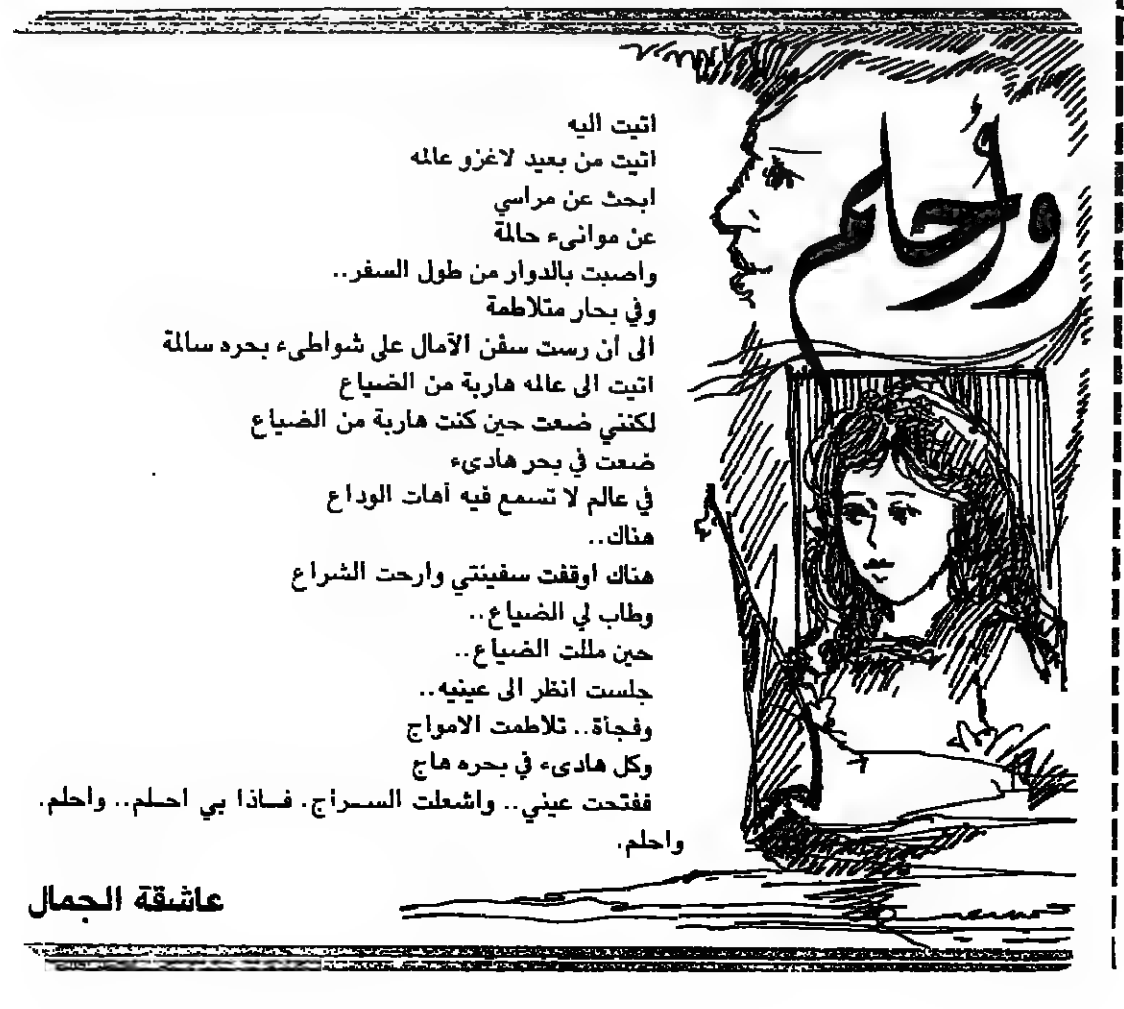 وأحلم
اتيت اليه
اتيت من بعيد لاغزو عالمه
ابحث عن مراسي
عن موانىء حالمة
واصبت بالدوار من طول السفر..
وفي بحار متلاطمة
الى أن رست سفن الآمال على شواطىء بحره سالمة
اتيت الى عالمه هاربة من الضياع
لكنني ضعت حين كنت هاربة من الضياع
ضعت في بحر هادىء
في عالم لا تسمع فيه آهات الوداع
هناك..
هناك اوقفت سفينتي وارحت الشراع
وطاب لي الضياع..
حين مللت الضياع..
جلست انظر الى عينيه..
وفجأة.. تلاطمت الامواج
وكل هادىء في بحره هاج
ففتحت عيني.. واشعلت السراج. فاذا بي احلم.. واحلم.
واحلم.
عاشقة الجمال